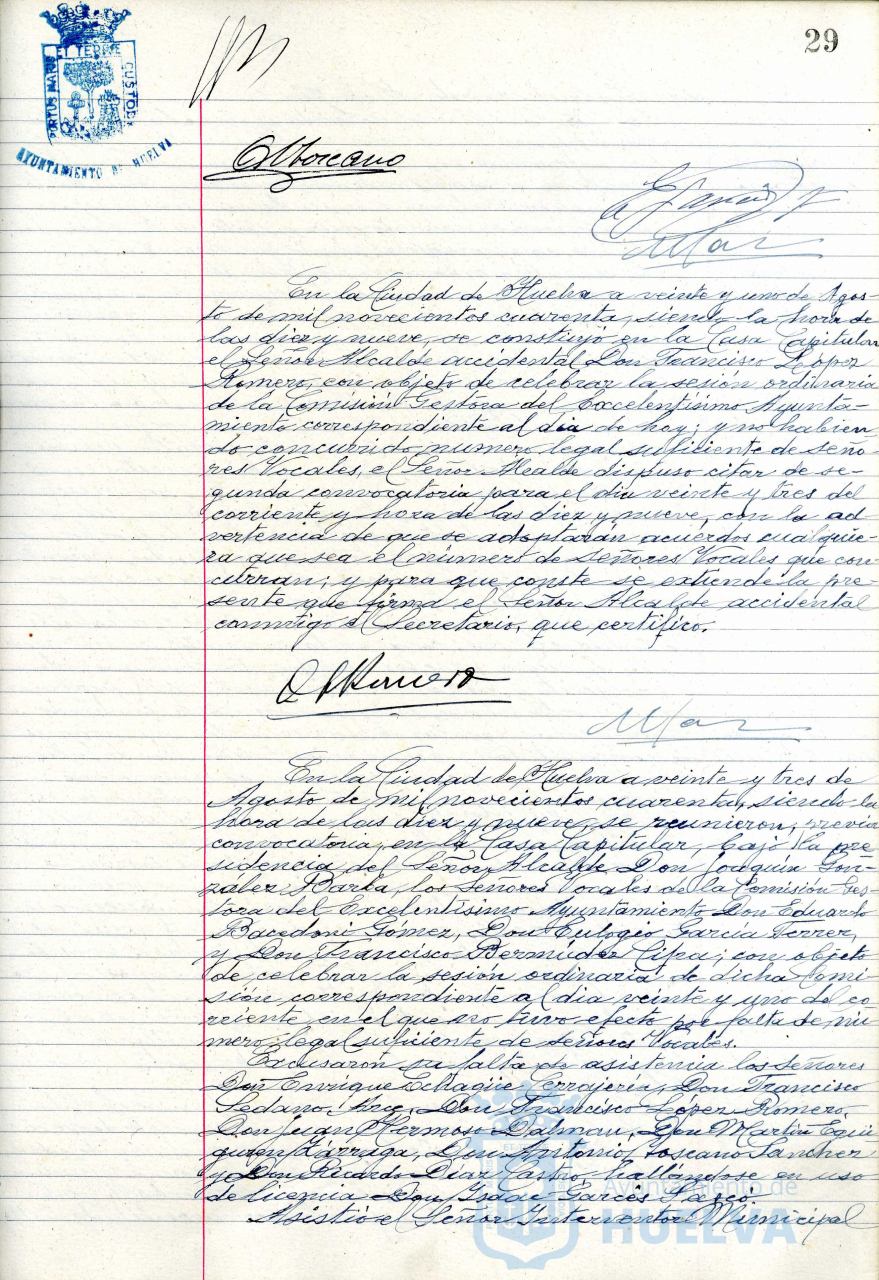 29
PORTUS MARIS
ET TERRE
CUSTODI
AYUNTAMIENTO DE HUELVA
En la Ciudad de Huelva a veinte y uno de Agos-
to de mil novecientos cuarenta, siendo la hora de
las diez y nueve, se constituyó en la Casa Capitular
el Señor Alcalde accidental Don Francisco López
Romero, con objeto de celebrar la sesión ordinaria
de la Comisión Gestora del Excelentísimo Ayunta-
miento correspondiente al día de hoy; y no habien
do concurrido número legal suficiente de seño-
res Vocales, el Señor Alcalde dispuso citar de se-
gunda convocatoria para el día veinte y tres del
corriente y hora de las diez y nueve, con la ad
vertencia de que se adoptarán acuerdos cualquie-
ra que sea el número de señores Vocales que con
curran; y para que conste se extiende la pre-
sente que firma el Señor Alcalde accidental
conmigo el Secretario, que certifico.
En la Ciudad de Huelva a veinte y tres de
Agosto de mil novecientos cuarenta, siendo la
hora de las diez y nueve se reunieron, previa
convocatoria, en la Casa Capitular, bajo la pre
sidencia del Señor Alcalde Don Joaquín Gon-
zález Barba, los señores Vocales de la Comisión Ges-
tora del Excelentísimo Ayuntamiento Don Eduardo
Bacedoni Gómez, Don Eulogio García Ferrer,
y Don Francisco Bermúdez Cipa; con objeto
de celebrar la sesión ordinaria de dicha Comi-
sión correspondiente al día veinte y uno del co
rriente en el que no tuvo efecto por falta de nú-
mero legal suficiente de señores Vocales.
Excusaron su falta de asistencia los señores
Don Enrique Echagüe Cerrajería, Don Francisco
Sedano Arce, Don Francisco López Romero,
Don Juan Hermoso Dalmau, Don Martín Egui
guren Zárraga, Don Antonio Toscano Sánchez
y Don Ricardo Díaz Castro hallándose en uso
de licencia Don Isaac Garcés Pascó.
Asistió el Señor Interventor Municipal
Ayuntamiento de
HUELVA